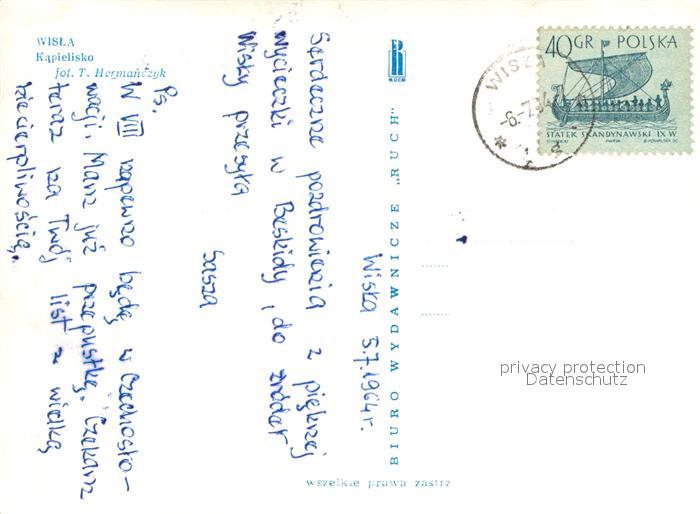 WISŁA
Kąpielisko
fot. T. Hermańczyk
RUCH
40GR POLSKA
STATEK SKANDYNAWSKI IX W
WISŁA
-6.-7.64
Wisła 5.7.1964r.
Serdeczne pozdrowienia z pięknej
wycieczki w Beskidy i do źródeł
Wisły przesyła
Sasza
Ps.
W VIII napewno będę w Czechosło-
wacji. Mam już przepustkę. Czekam
teraz na Twój list z wielką
niecierpliwością.
BIURO WYDAWNICZE „RUCH"
wszelkie prawa zastrz
privacy protection
Datenschutz